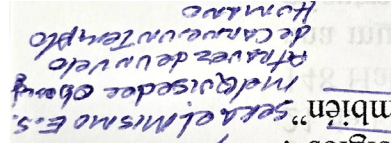 mbién". SERA el MISMO E.S.
Melquisedec
ATRAVEZ DE UN VELO
de CARNE, UN Templo
HUMANO